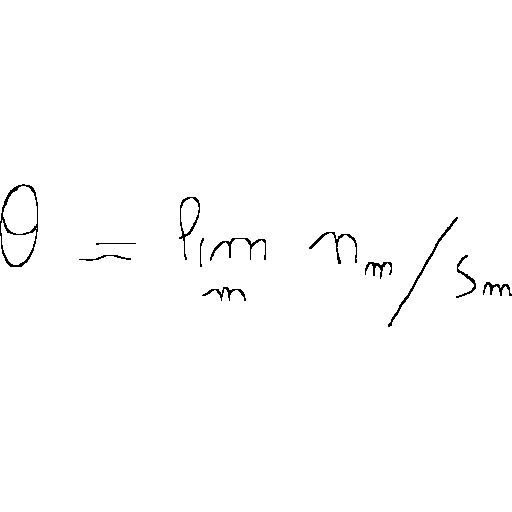 θ = lim_m n_m / s_m